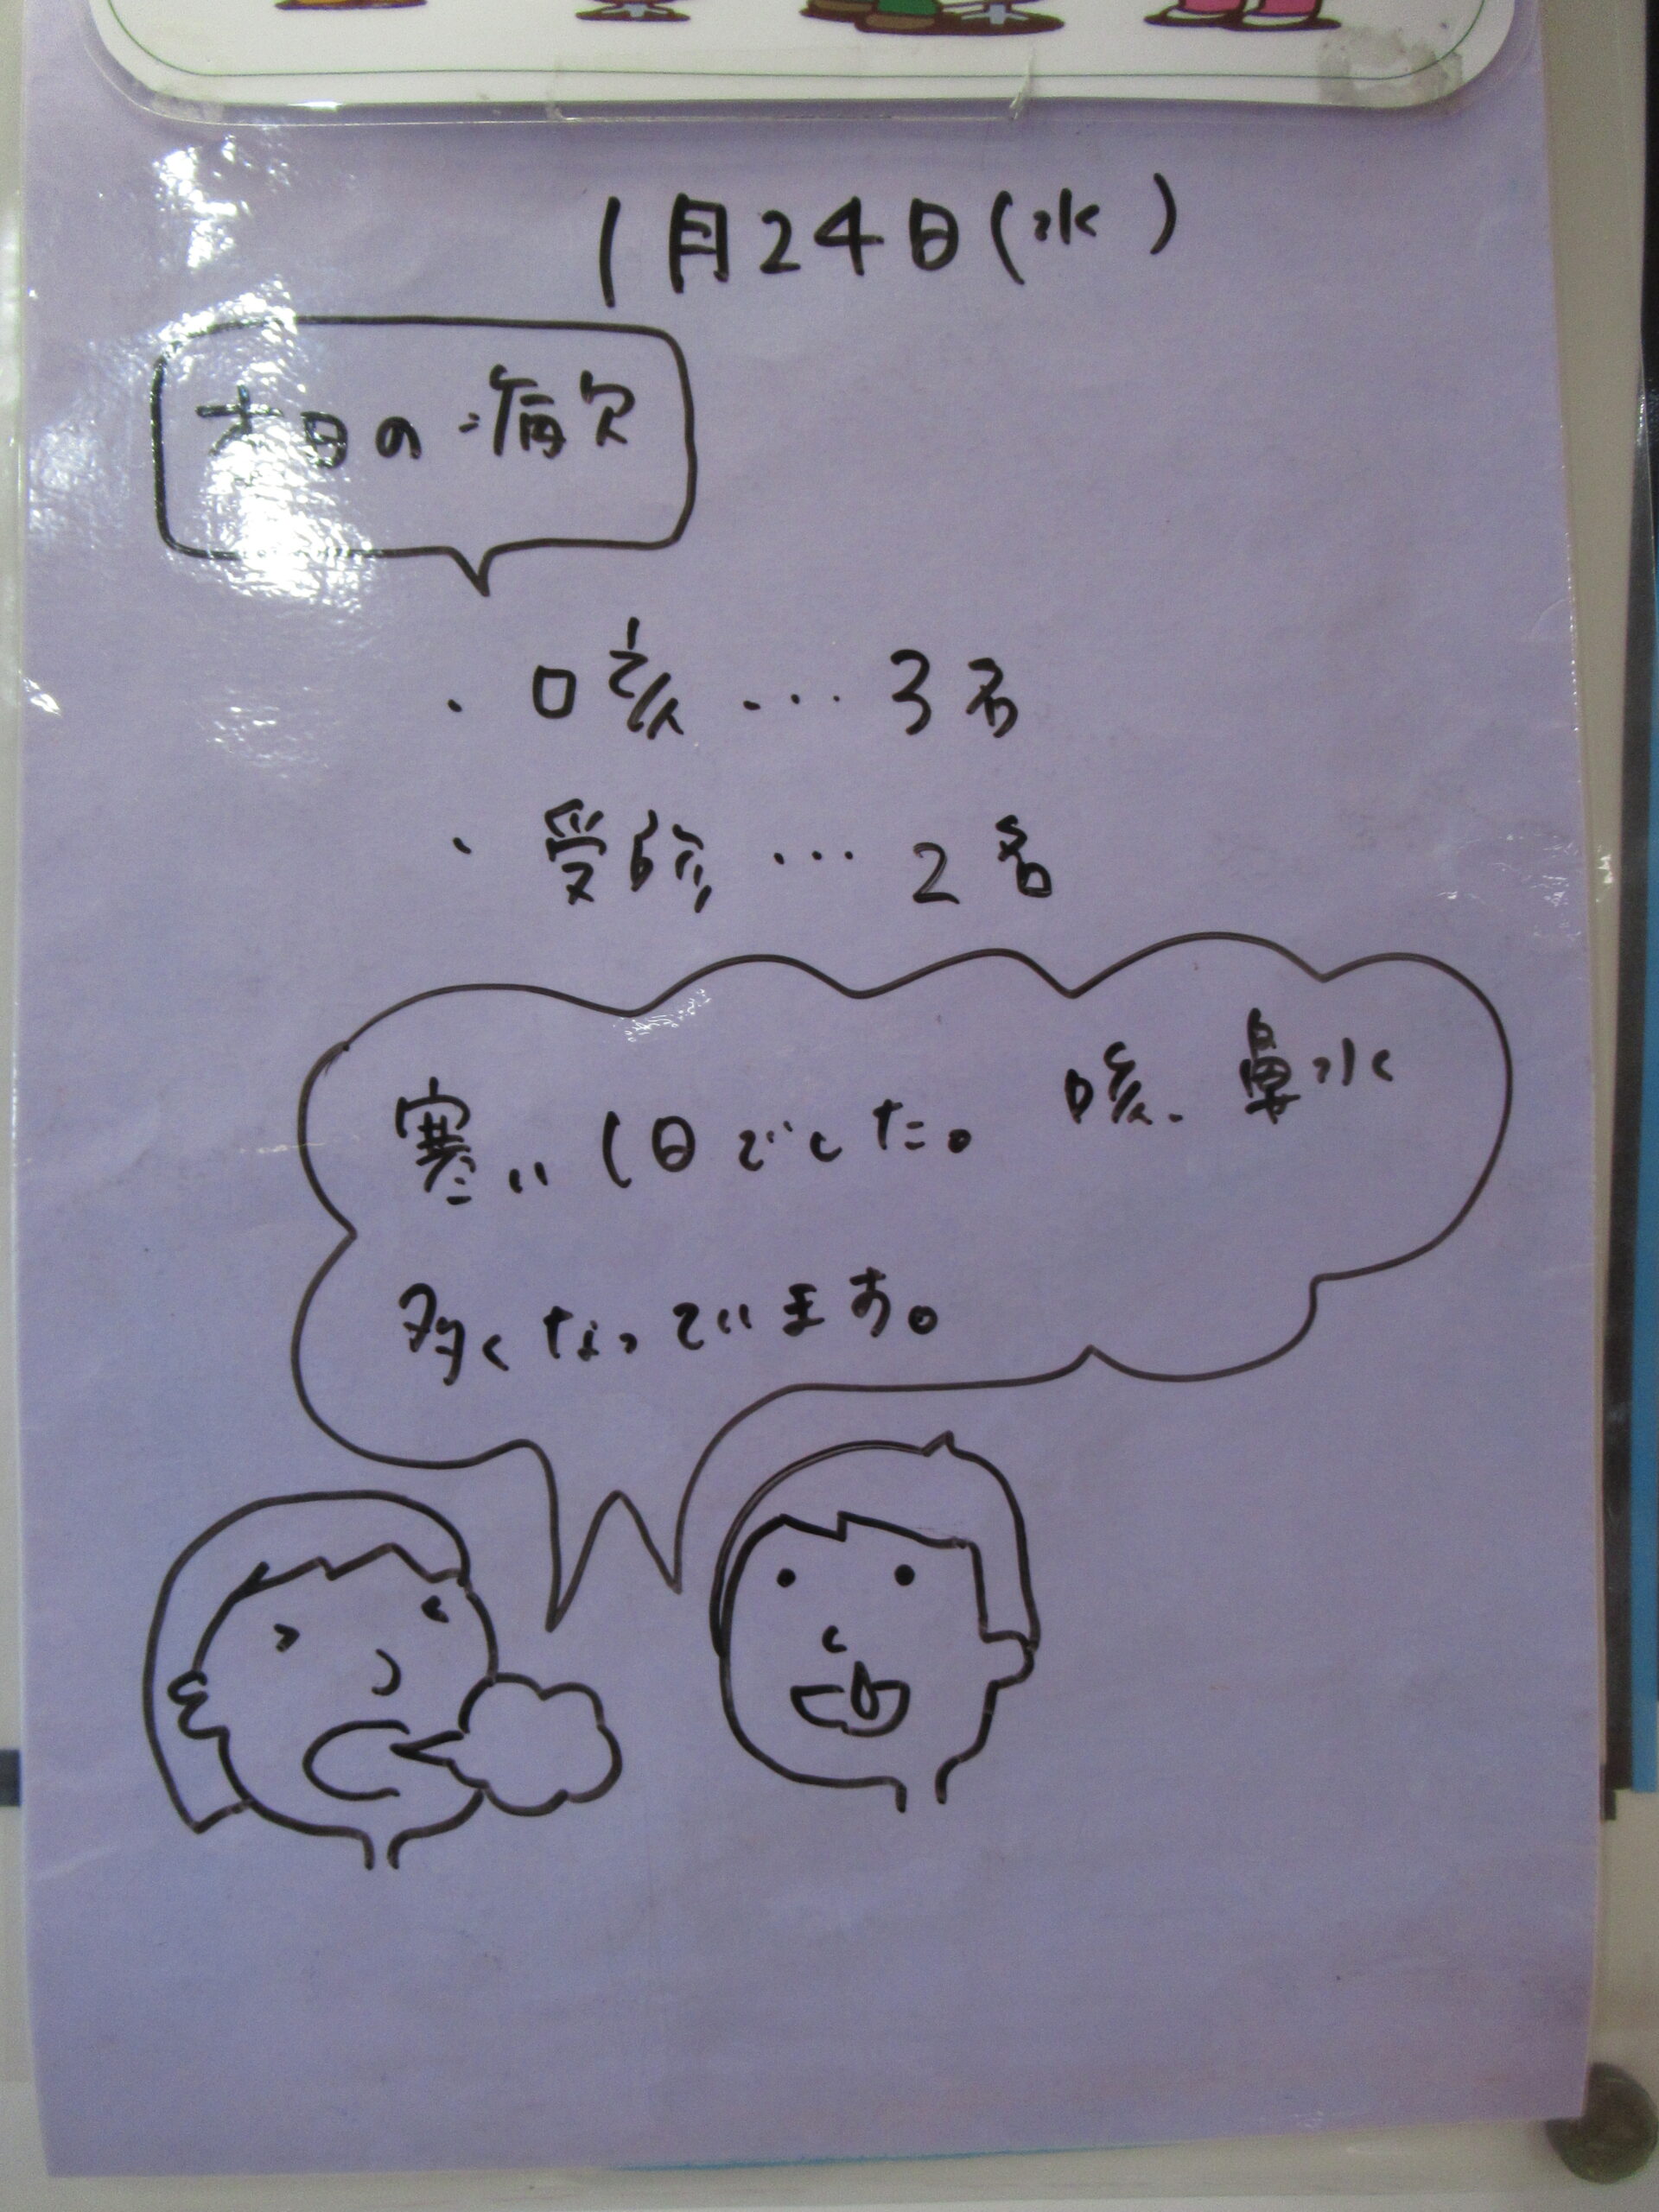 1月24日(水)
本日の病欠
・咳…3名
・受診…2名
寒い1日でした。咳、鼻水
多くなっています。